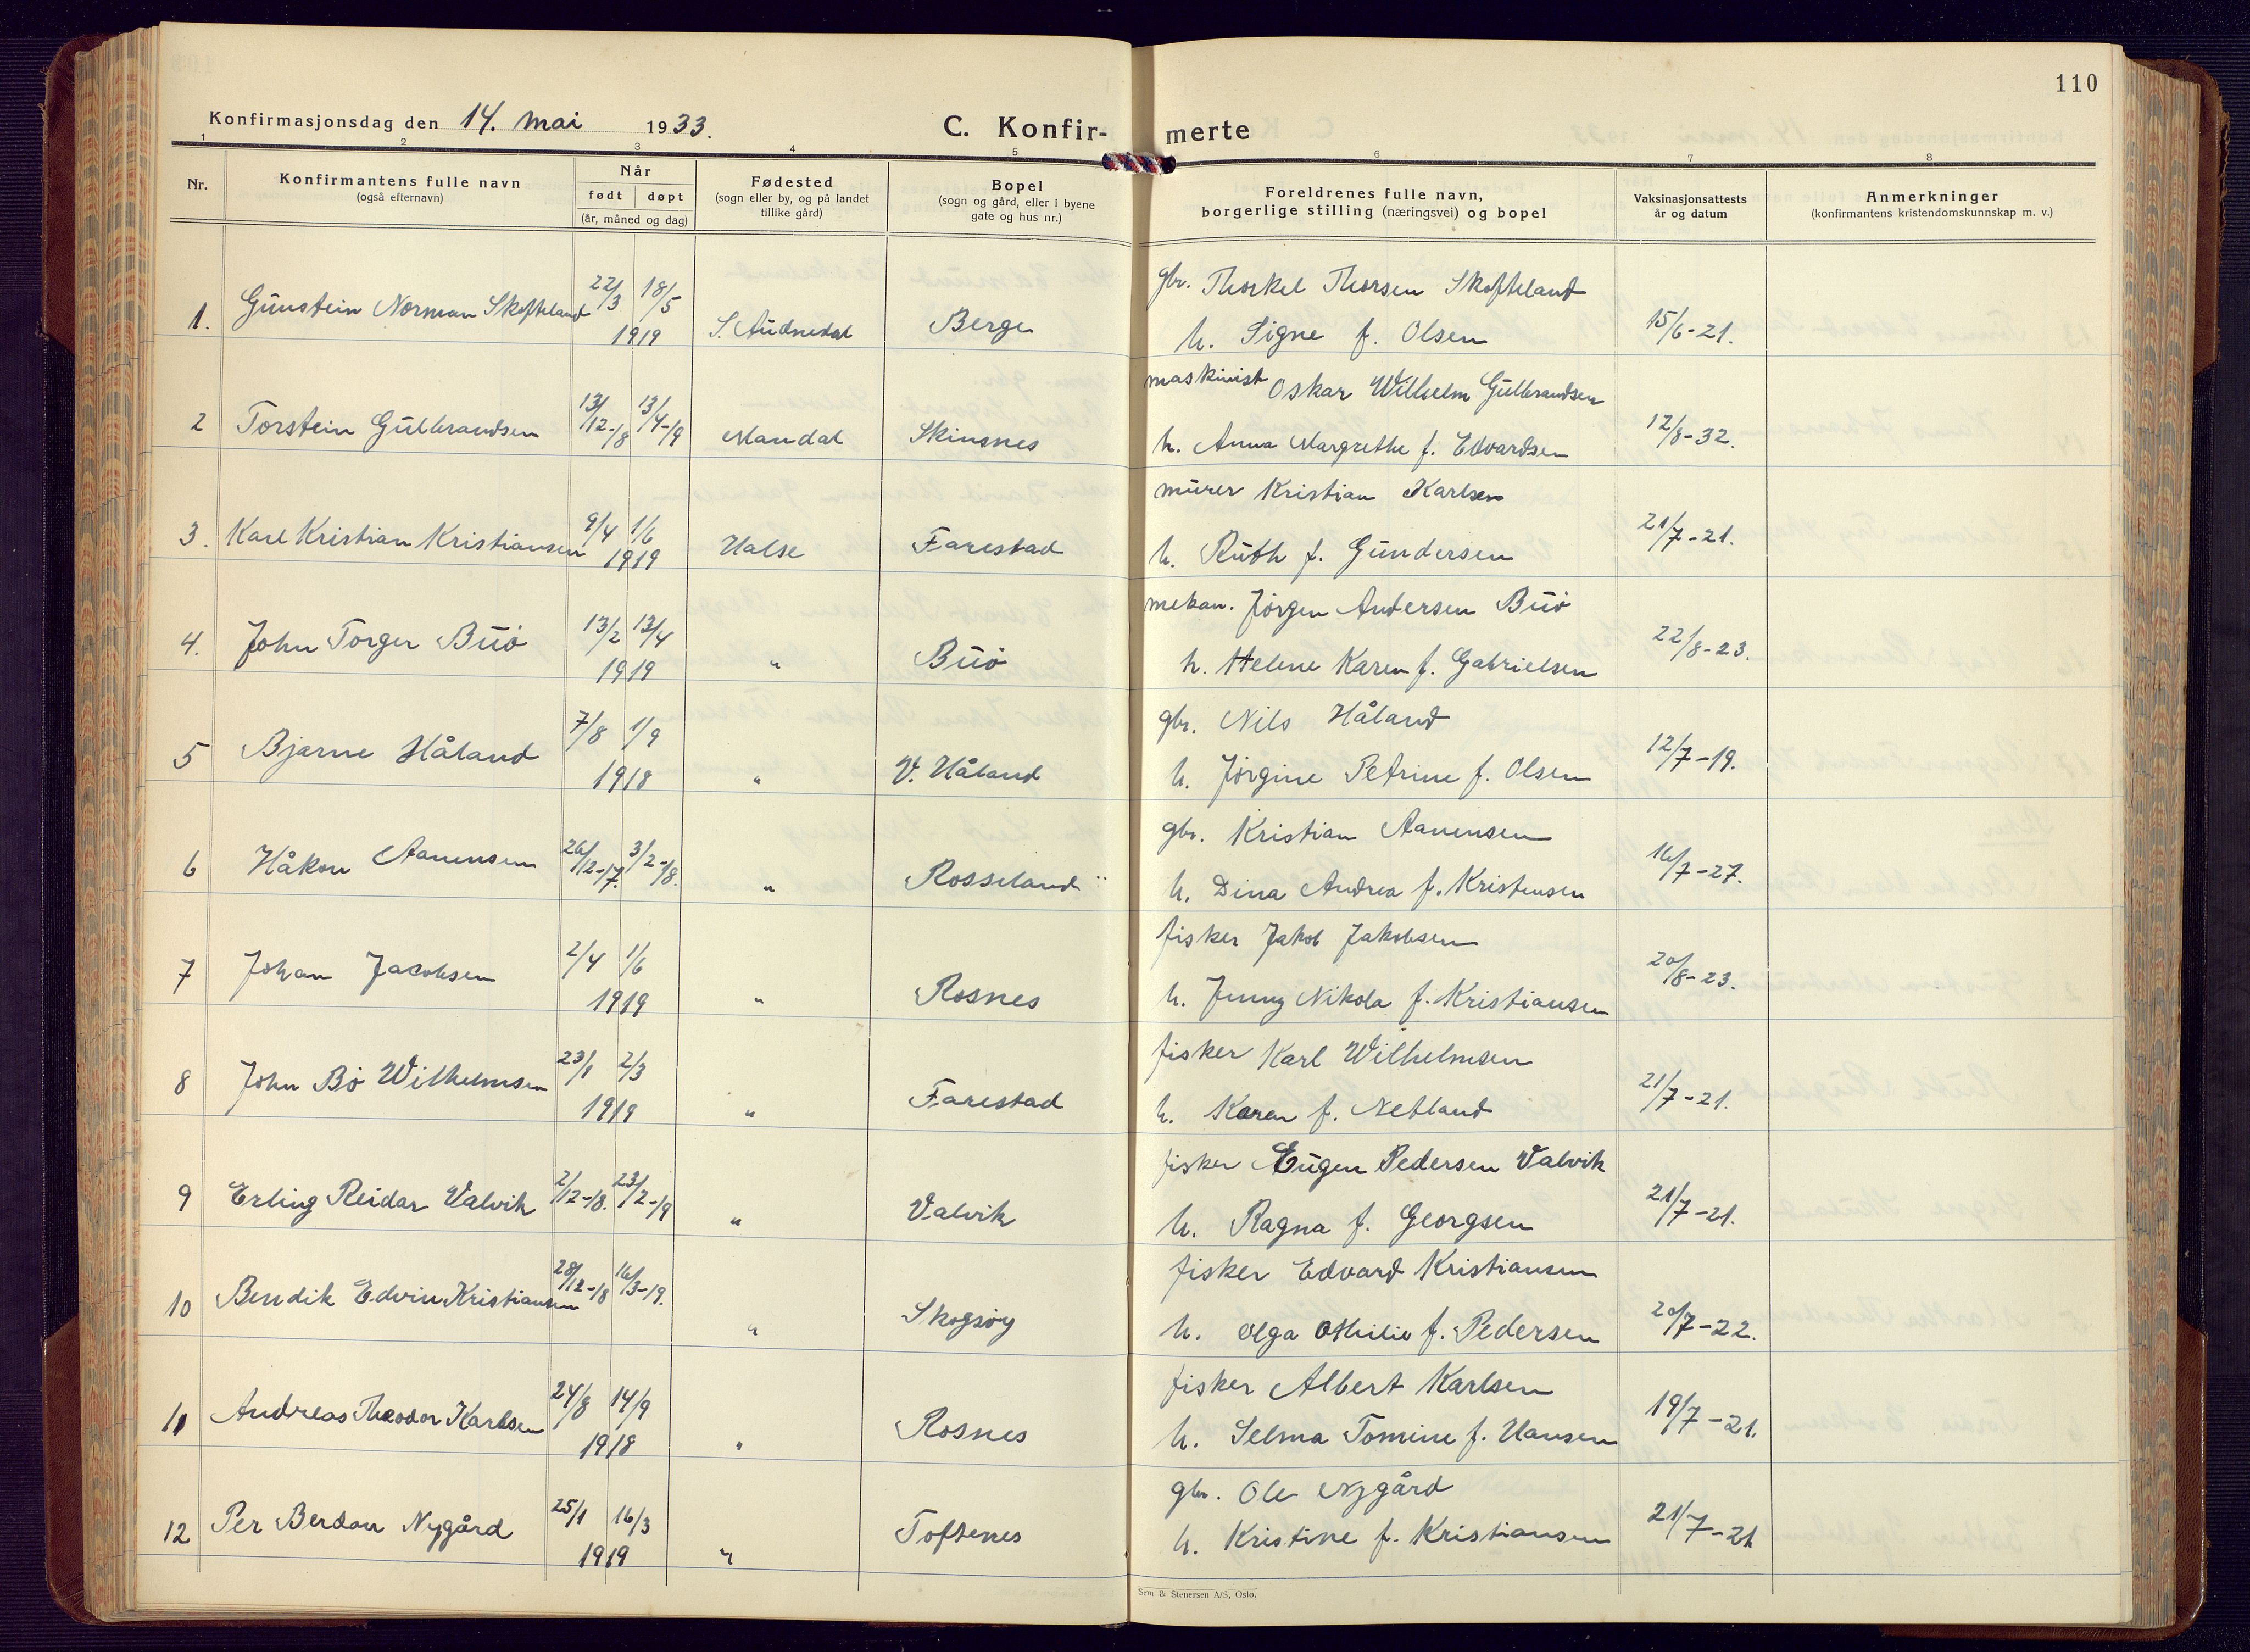 110
Konfirmasjonsdag den 14. mai 1933. C. Konfir- merte
1 2 3 4 5 6 7 8
Nr. Konfirmantens fulle navn (også efternavn) Når født døpt (år, måned og dag) Fødested (sogn eller by, og på landet tillike gård) Bopel (sogn og gård, eller i byene gate og hus nr.) Foreldrenes fulle navn, borgerlige stilling (næringsvei) og bopel Vaksinasjonsattests år og datum Anmerkninger (konfirmantens kristendomskunnskap m. v.)
gbr. Thorkel Thorsen Skofteland
1. Gunstein Norman Skofteland 22/3 18/5 1919 S. Audnedal Berge h. Signe f. Olsen 15/6-21.
maskinist Oskar Wilhelm Gulbrandsen
2 Torstein Gulbrandsen 13/12-18 13/4-19 Mandal Skinsnes h. Anna Margrethe f. Edvardsen 12/8-32.
murer Kristian Karlsen
3. Karl Kristian Kristiansen 9/4 1/6 1919 Halse Farestad h. Ruth f. Gundersen 21/7-21.
mekan. Jørgen Andersen Buø
4. John Torger Buø 13/2 13/4 1919 " Buø h. Helene Karen f. Gabrielsen 22/8-23.
gbr. Nils Håland
5 Bjarne Håland 7/8 1/9 1918 " V. Håland h. Jørgine Petrine f. Olsen 12/7-19.
gbr. Kristian Aanensen
6 Håkon Aanensen 26/12-17. 3/2-18. " Rosseland h. Dina Andrea f. Kristensen 16/7-27.
fisker Jakob Jakobsen
7 Johan Jacobsen 2/4 1/6 1919 " Rosnes h. Jenny Nikola f. Kristiansen 20/8-23.
fisker Karl Wilhelmsen
8 John Bø Wilhelmsen 23/1 2/3 1919 " Farestad h. Karen f. Netland 21/7-21.
fisker Eugen Pedersen Valvik
9 Erling Reidar Valvik 2/12-18. 23/2-19 " Valvik h. Ragna f. Georgsen 21/7-21.
fisker Edvard Kristiansen
10 Bendik Edvin Kristiansen 28/12-18 16/3-19. " Skogsøy h. Olga Othilie f. Pedersen 20/7-22.
fisker Albert Karlsen
11 Andreas Theodor Karlsen 24/8 14/9 1918 " Rosnes h. Selma Tomine f. Hansen 19/7-21.
gbr. Ole Nygård
12 Per Berdon Nygård 25/1 16/3 1919 " Toftenes h. Kristine f. Kristiansen 21/7-21
Sem & Stenersen A/S, Oslo.